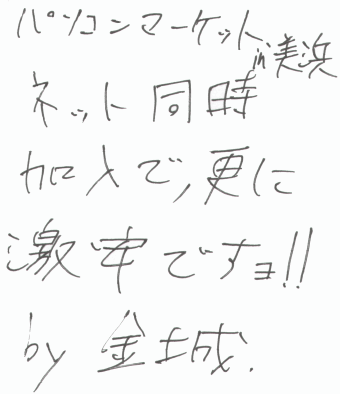 パソコンマーケット in 美浜
ネット同時
加入で,更に
激安ですヨ!!
by 金城.